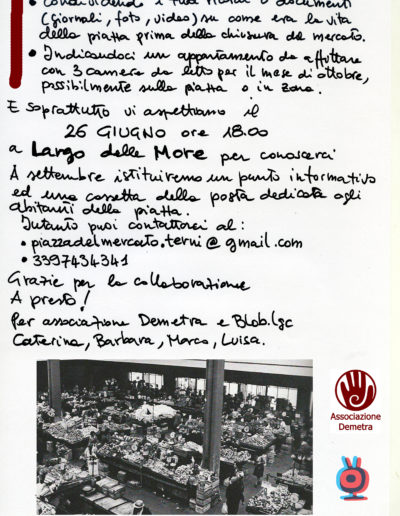 • Condividendo i tuoi ricordi o documenti
(giornali, foto, video) su come era la vita
della piazza prima della chiusura del mercato.
• Indicandoci un appartamento da affittare
con 3 camere da letto per il mese di ottobre,
possibilmente sulla piazza o in zona.
E soprattutto vi aspettiamo il
26 GIUGNO ore 18.00
a Largo delle More per conoscerci
A settembre istituiremo un punto informativo
ed una cassetta della posta dedicata agli
abitanti della piazza.
Intanto puoi contattarci al:
• piazzadelmercato.terni@gmail.com
• 3397434341
Grazie per la collaborazione
A presto!
Per associazione Demetra e Blob.lgc
Caterina, Barbara, Marco, Luisa.
Associazione
Demetra